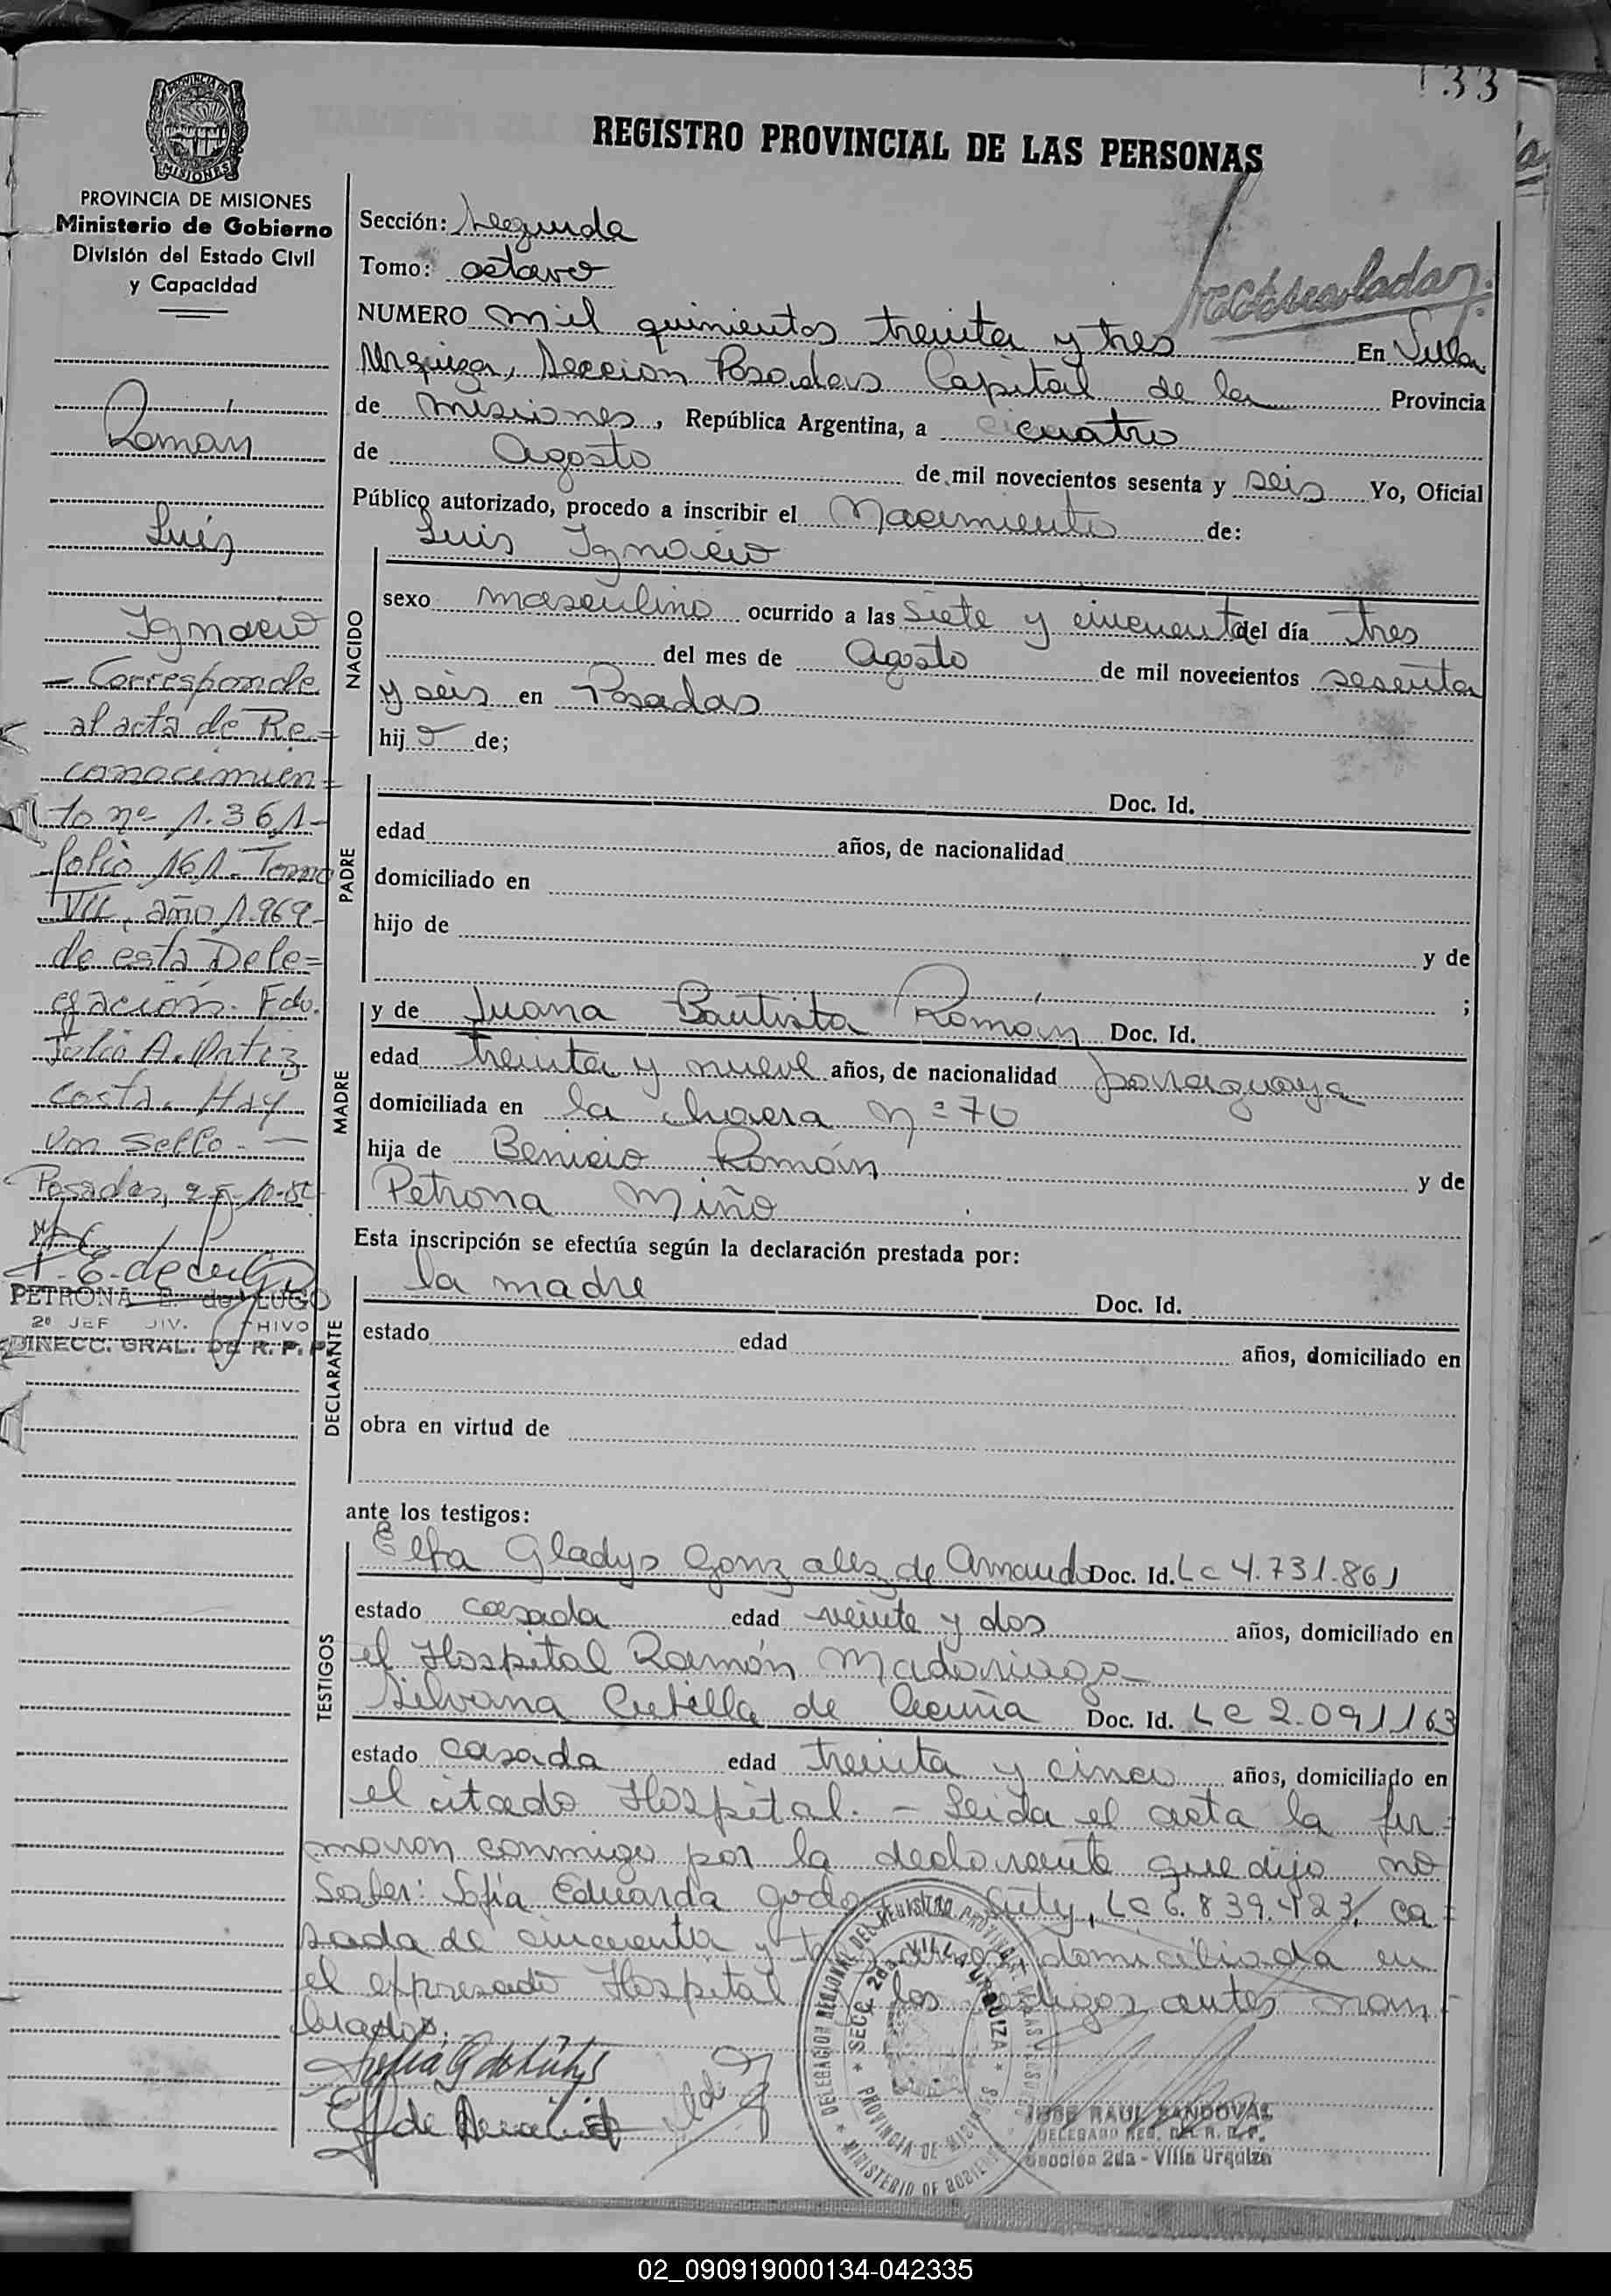 133
REGISTRO PROVINCIAL DE LAS PERSONAS
PROVINCIA DE MISIONES
Ministerio de Gobierno
División del Estado Civil
y Capacidad
Román
Luis
Ignacio
- Corresponde
al acta de Re=
conocimien=
to nº 1.361-
folio 161- Tomo
VII, año 1.969-
de esta Dele=
gación. Fdo.
Julio A. Ortiz
Costa. Hay
un sello. -
Posadas,
PETRONA E. de LUGO
2º JEF DIV. HIVO
DIRECC. GRAL. DE R. P. P.
Sección: Segunda
Tomo: octavo
NUMERO mil quinientos treinta y tres En Villa
Urquiza, Sección Posadas Capital de la Provincia
de Misiones, República Argentina, a cuatro
de Agosto de mil novecientos sesenta y seis Yo, Oficial
Público autorizado, procedo a inscribir el Nacimiento de:
Luis Ignacio
NACIDO
sexo masculino ocurrido a las siete y cincuenta del día tres
del mes de Agosto de mil novecientos sesenta
y seis en Posadas
hijo de;
PADRE
Doc. Id.
edad años, de nacionalidad
domiciliado en
hijo de y de
;
MADRE
y de Juana Bautista Román Doc. Id.
edad treinta y nueve años, de nacionalidad paraguaya
domiciliada en la chacra nº 70
hija de Benicio Román y de
Petrona Miño
Esta inscripción se efectúa según la declaración prestada por:
DECLARANTE
la madre Doc. Id.
estado edad años, domiciliado en
obra en virtud de
ante los testigos:
TESTIGOS
Elfa Gladys Gonzalez de Amaud Doc. Id. LC 4.731.861
estado casada edad veinte y dos años, domiciliado en
el Hospital Ramón Madariaga
Silvana Cutella de Acuña Doc. Id. LC 2.091163
estado casada edad treinta y cinco años, domiciliado en
el citado Hospital. - Leida el acta la fir=
maron conmigo por la declarante que dijo no
saber: Sofía Eduarda LC 6.839.423, ca=
sada de cincuenta y años domiciliada en
el expresado Hospital y los testigos antes nom=
brados.
DELEGACION REGIONAL DEL REGISTRO PROVINCIAL DE LAS PERSONAS
SECC. 2da. VILLA URQUIZA
PROVINCIA DE MISIONES
MINISTERIO DE GOBIERNO
JOSE RAUL SANDOVAL
DELEGADO REG. DEL R. P. P.
Sección 2da - Villa Urquiza
02_090919000134-042335